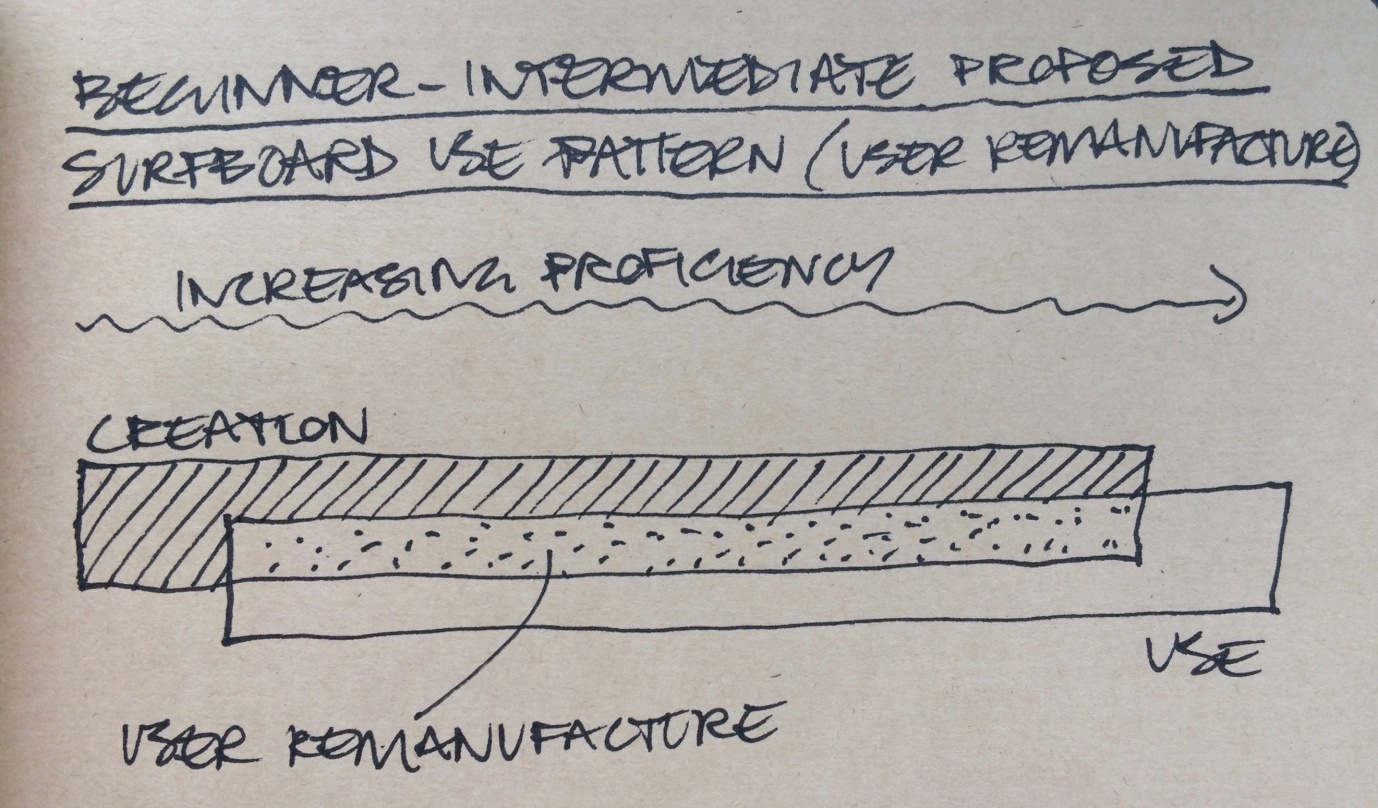 BEGINNER-INTERMEDIATE PROPOSED
SURFBOARD USE PATTERN (USER REMANUFACTURE)
INCREASING PROFICIENCY
CREATION
USE
USER REMANUFACTURE